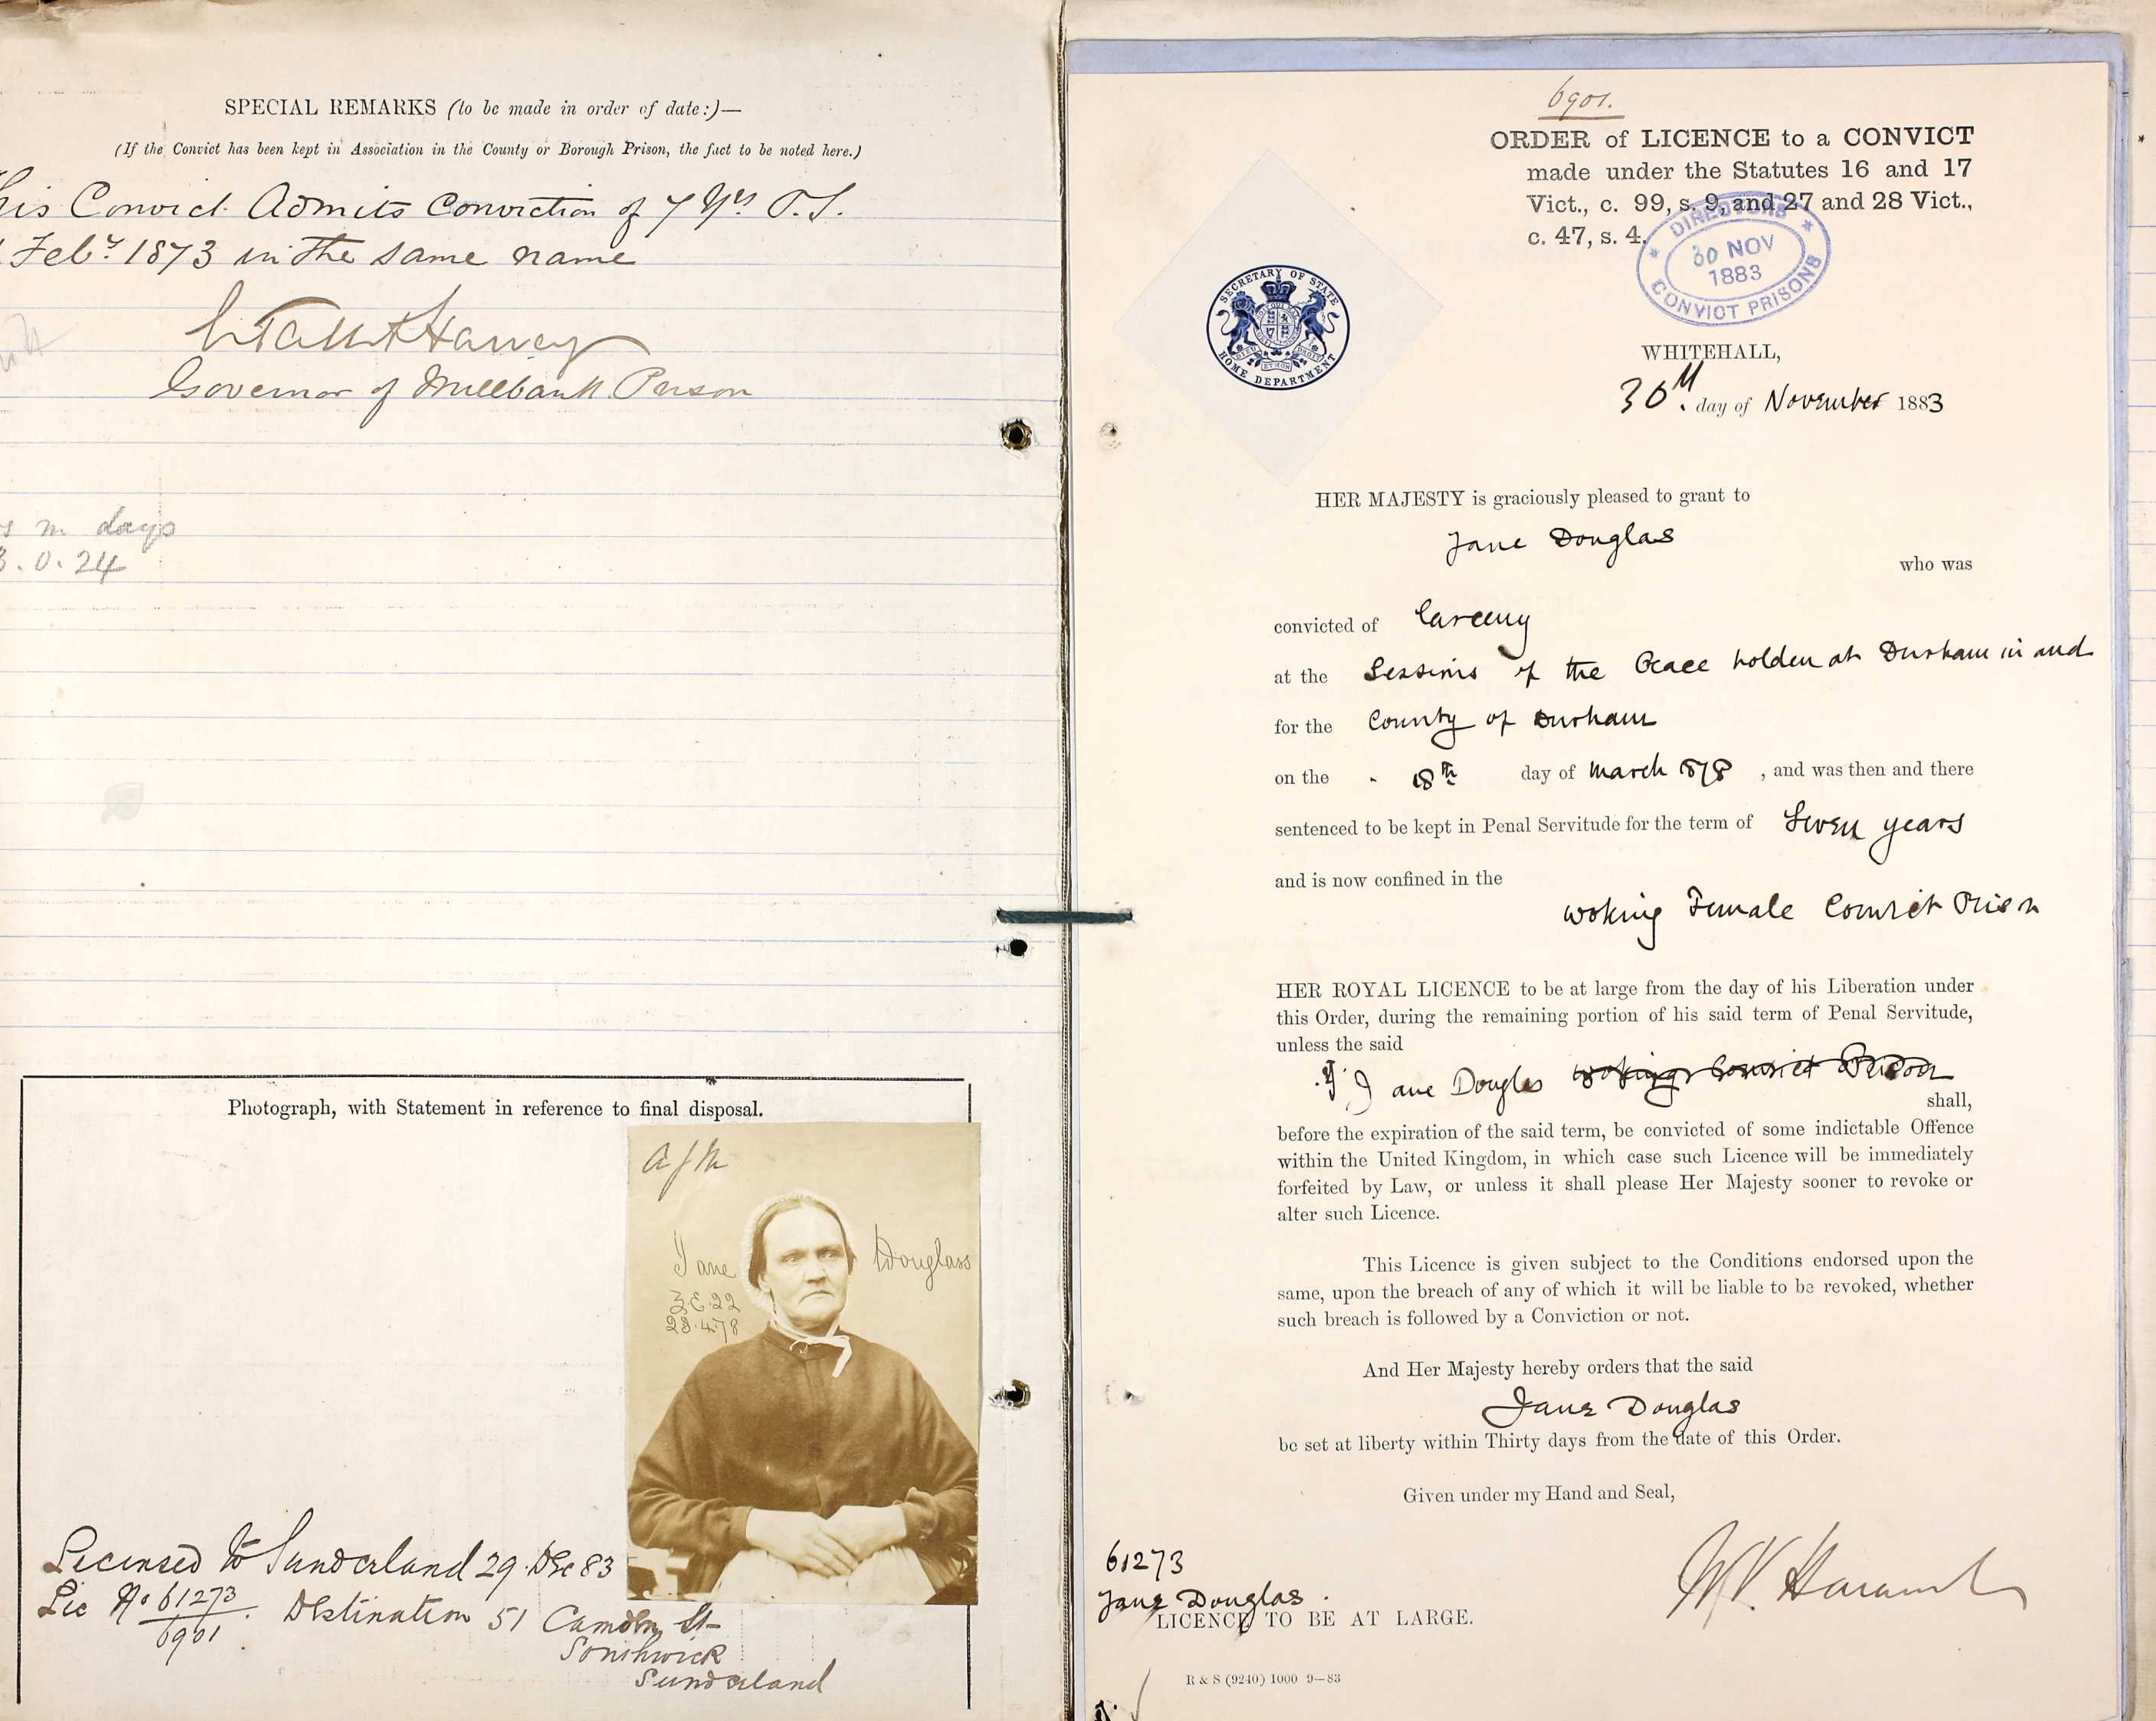 SPECIAL REMARKS (to be made in order of date:)—
(If the Convict has been kept in Association in the County or Borough Prison, the fact to be noted here.)
his Convict Admits Conviction of 7 Yrs P.S.
Feby 1873 in the same name
Harvey
Governor of Millbank Prison
m days
3.0.24
Photograph, with Statement in reference to final disposal.
Jane Douglass
3.E.22
23.4.78
Licensed to Sunderland 29 Dec 83
Lic No 61273
6901
Destination 51 Camden St
Southwick
Sunderland
6901.
ORDER of LICENCE to a CONVICT
made under the Statutes 16 and 17
Vict., c. 99, s. 9, and 27 and 28 Vict.,
c. 47, s. 4.
DIRECTORS
30 NOV
1883
CONVICT PRISONS
SECRETARY OF STATE
HOME DEPARTMENT
WHITEHALL,
30th day of November 1883
HER MAJESTY is graciously pleased to grant to
Jane Douglas
who was
convicted of Larceny
at the Sessions of the Peace holden at Durham in and
for the County of Durham
on the 18th day of March 1878, and was then and there
sentenced to be kept in Penal Servitude for the term of Seven years
and is now confined in the
Woking Female Convict Prison
HER ROYAL LICENCE to be at large from the day of his Liberation under
this Order, during the remaining portion of his said term of Penal Servitude,
unless the said
Jane Douglas Woking Convict Prison
shall,
before the expiration of the said term, be convicted of some indictable Offence
within the United Kingdom, in which case such Licence will be immediately
forfeited by Law, or unless it shall please Her Majesty sooner to revoke or
alter such Licence.
This Licence is given subject to the Conditions endorsed upon the
same, upon the breach of any of which it will be liable to be revoked, whether
such breach is followed by a Conviction or not.
And Her Majesty hereby orders that the said
Jane Douglas
be set at liberty within Thirty days from the date of this Order.
Given under my Hand and Seal,
61273
Jane Douglas.
LICENCE TO BE AT LARGE.
R & S (9240) 1000 9—83